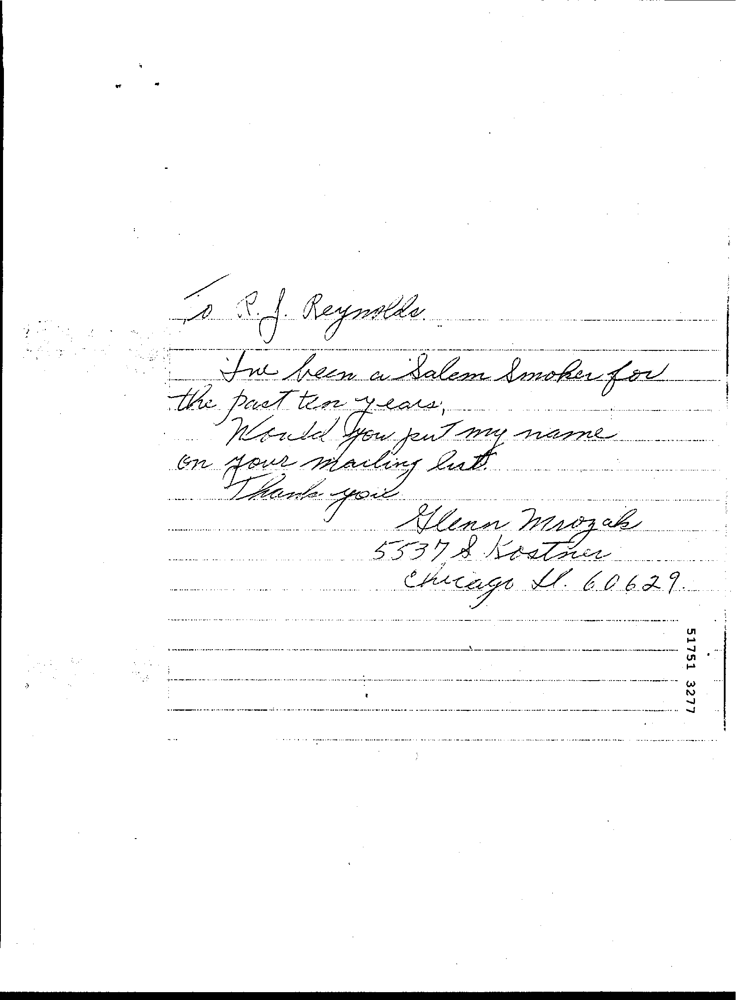 To R.J. Reynolds.
I've been a Salem Smoker for
the past ten years,
Would you put my name
on your mailing list.
Thank you
Glenn Mrozak
5537 S Kostner
Chicago Il. 60629.
51751 3277